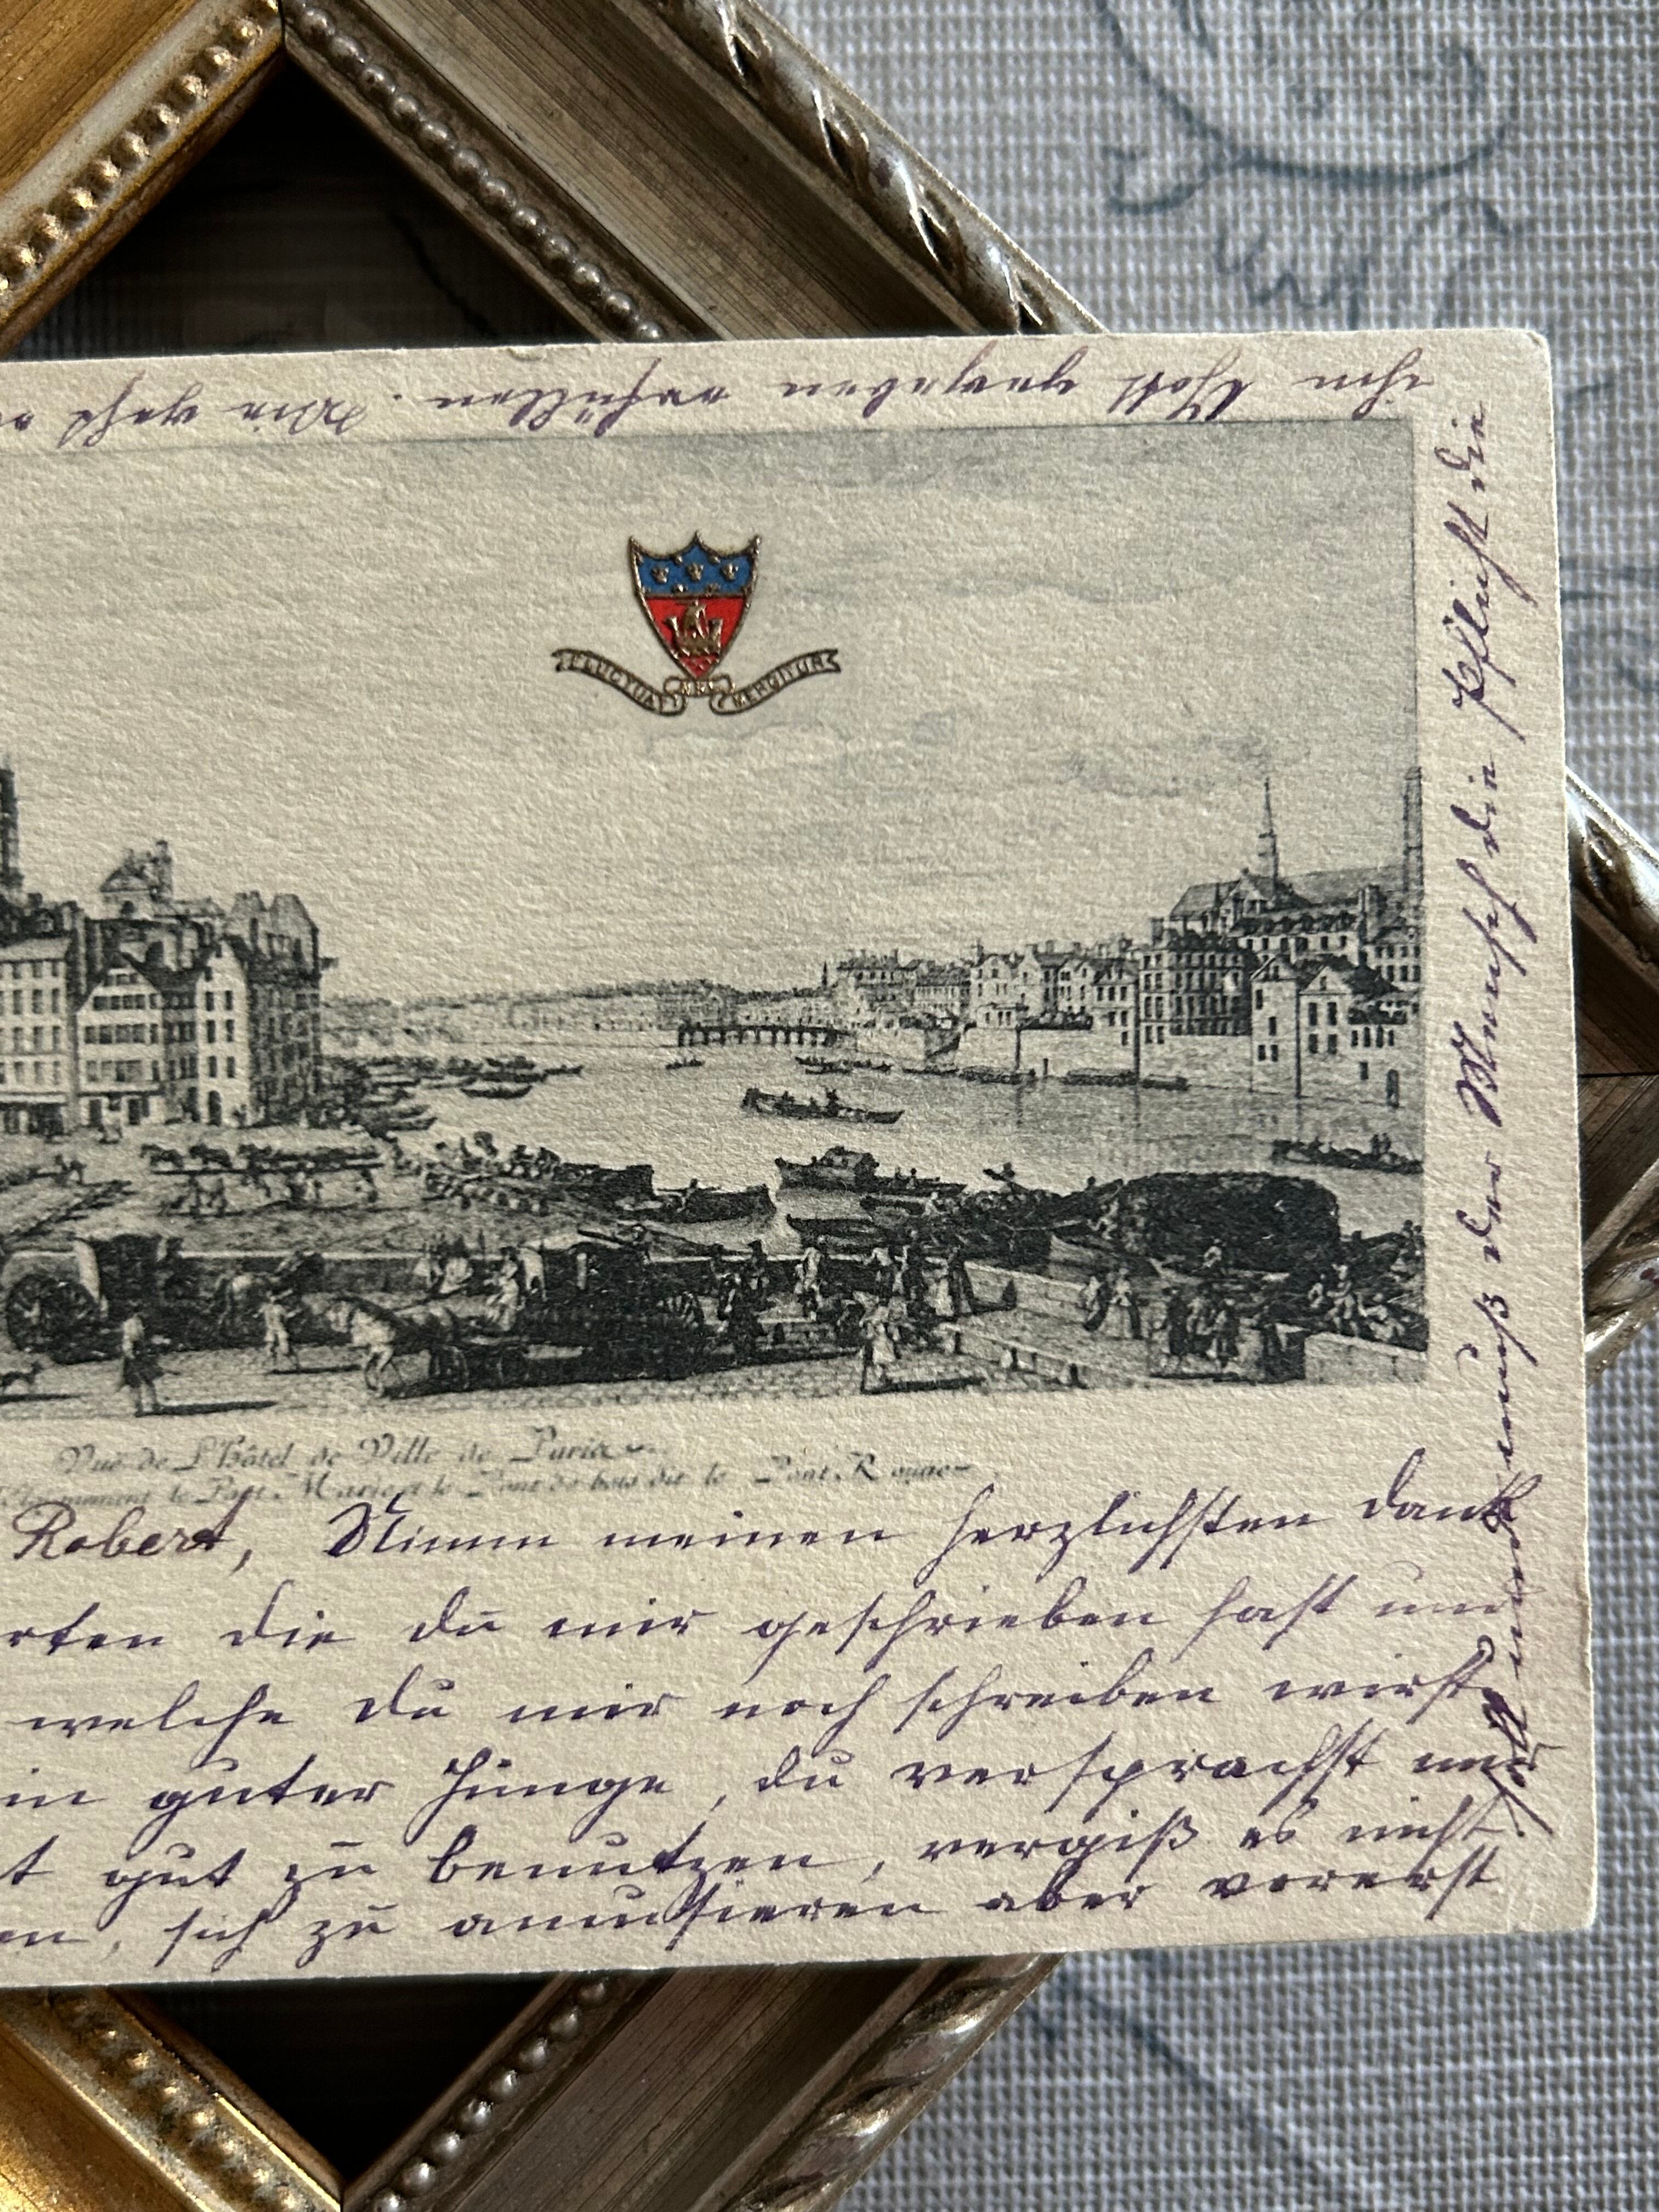 FLUCTUAT NEC MERGITUR
Vuë de L'Hôtel de Ville de Paris
le Pont Marie et le Pont de bois dit le Pont Rouge
Robert, Nimm meinen herzlichsten Dank
rten die du mir geschrieben hast und
welche du mir noch schreiben wirst
in guter Junge, du versprachst mir
t gut zu benutzen, vergiß es nicht.
en, sich zu amüsieren aber vorerst
muß der Mensch die Pflicht die
ihm Gott gegeben erfüllen. Wie geht e